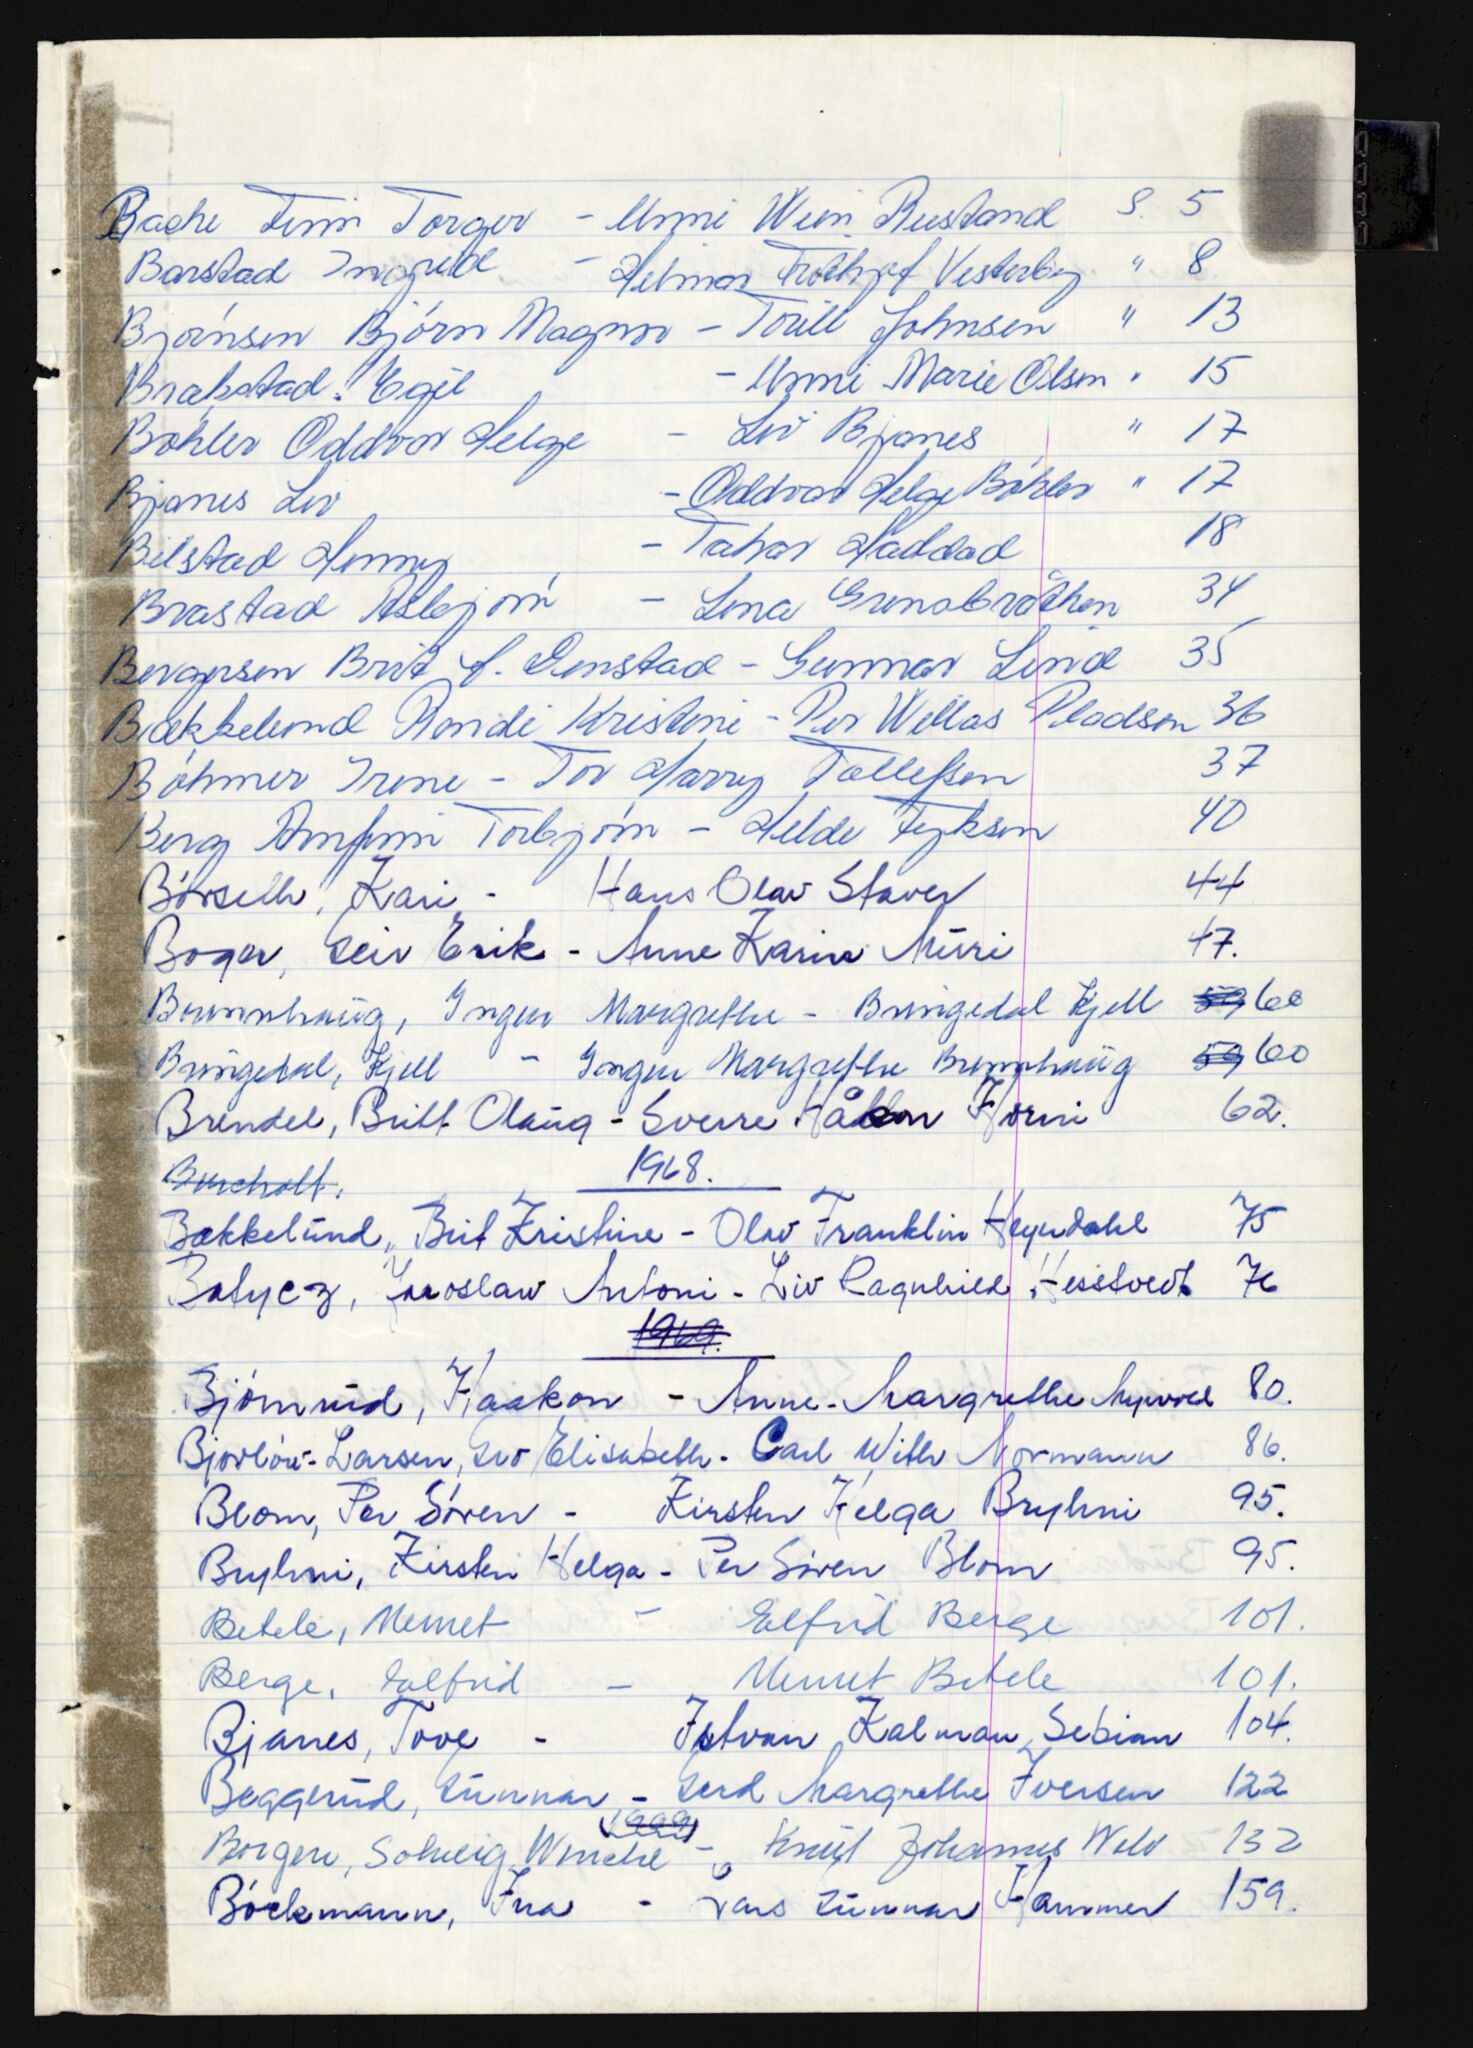 Bache Finn Torger - Unni Wein Rustand S. 5
Barstad Ingrid - Helmar Frithjof Vesterby " 8
Bjørnsen Bjørn Magnar - Torill Johnsen " 13
Brakstad Egil - Unni Marie Olsen " 15
Bøhler Oddvar Helge - Liv Bjanes " 17
Bjanes Liv - Oddvar Helge Bøhler " 17
Bilstad Henny - Tahar Haddad 18
Brastad Asbjørn - Lena Grensbråthen 34
Bergersen Brit f. Denstad - Gunnar Lind 35
Bækkelund Randi Kristine - Per Willas Pladsen 36
Bøhmer Irene - Tor Harry Tollefsen 37
Berg Arnfinn Torbjørn - Hilde Fyksen 40
Børseth, Kari - Hans Olav Staver 44
Boger, Geir Erik - Anne Karin Muri 47.
Brunnhaug, Inger Margrethe - Bringedal Kjell 59 60
Bringedal, Kjell - Inger Margrethe Brunnhaug 59 60
Brendel, Britt Olaug - Sverre Håkon Horni 62.
Burcholt. 1968.
Bækkelund, Brit Kristine - Olav Franklin Heyerdahl 75
Batycz, Jaroslaw Antoni - Liv Ragnhild Hesstvedt 76
1969.
Bjørnrud, Haakon - Anne-Margrethe Myrvold 80.
Bjorlow-Larsen, Liv Elisabeth - Carl With Normann 86.
Blom, Per Søren - Kirsten Helga Bryhni 95.
Bryhni, Kirsten Helga - Per Søren Blom 95.
Betele, Memet - Ealfrid Berge 101.
Berge, Ealfrid - Memet Betele 101.
Bjanes, Tove - Istvan Kalman Sebian 104.
Beggerud, Gunnar - Gerd Margrethe Iversen 122
Borgen, Solveig Wenche - Knut Johannes Wold 132
Böckmann, Ina - Lars Gunnar Hammer 159.